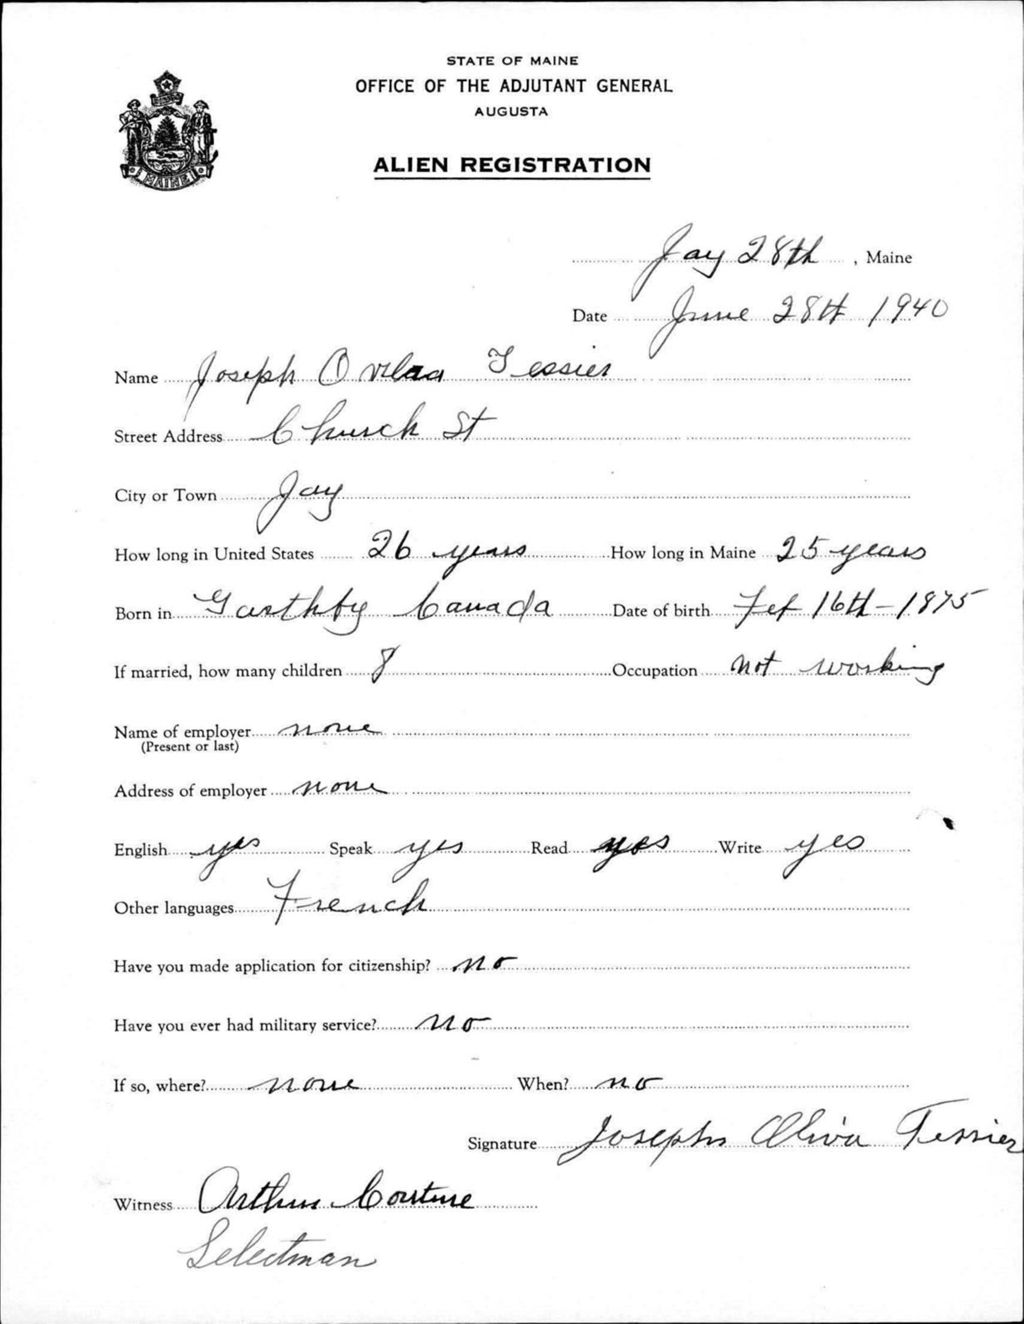 STATE OF MAINE
OFFICE OF THE ADJUTANT GENERAL
AUGUSTA
MAINE
ALIEN REGISTRATION
Jay 28th, Maine
Date June 28th 1940
Name Joseph Tessier
Street Address Church St
City or Town Jay
How long in United States 26 years How long in Maine 25 years
Born in Garthby Canada Date of birth Fef 16th-1875
If married, how many children 8 Occupation not working
Name of employer none
(Present or last)
Address of employer none
English yes Speak yes Read yes Write yes
Other languages French
Have you made application for citizenship? no
Have you ever had military service? no
If so, where? none When? no
Signature Joseph Oliva Tessier
Witness Arthur Couture
Selectman